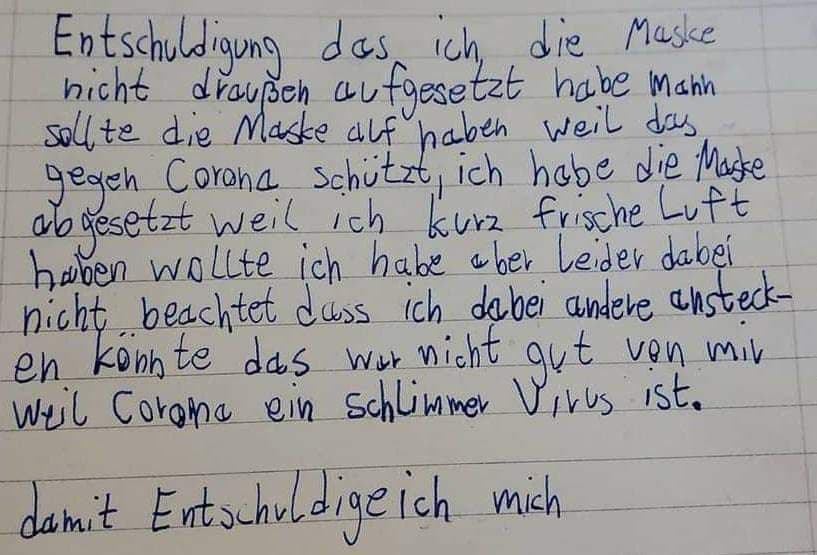 Entschuldigung das ich die Maske
nicht draußen aufgesetzt habe Mann
sollte die Maske auf haben weil das
gegen Corona schützt, ich habe die Maske
abgesetzt weil ich kurz frische Luft
haben wollte ich habe aber leider dabei
nicht beachtet dass ich dabei andere ansteck-
en könnte das war nicht gut von mir
weil Corona ein schlimmer Virus ist.
damit Entschuldige ich mich